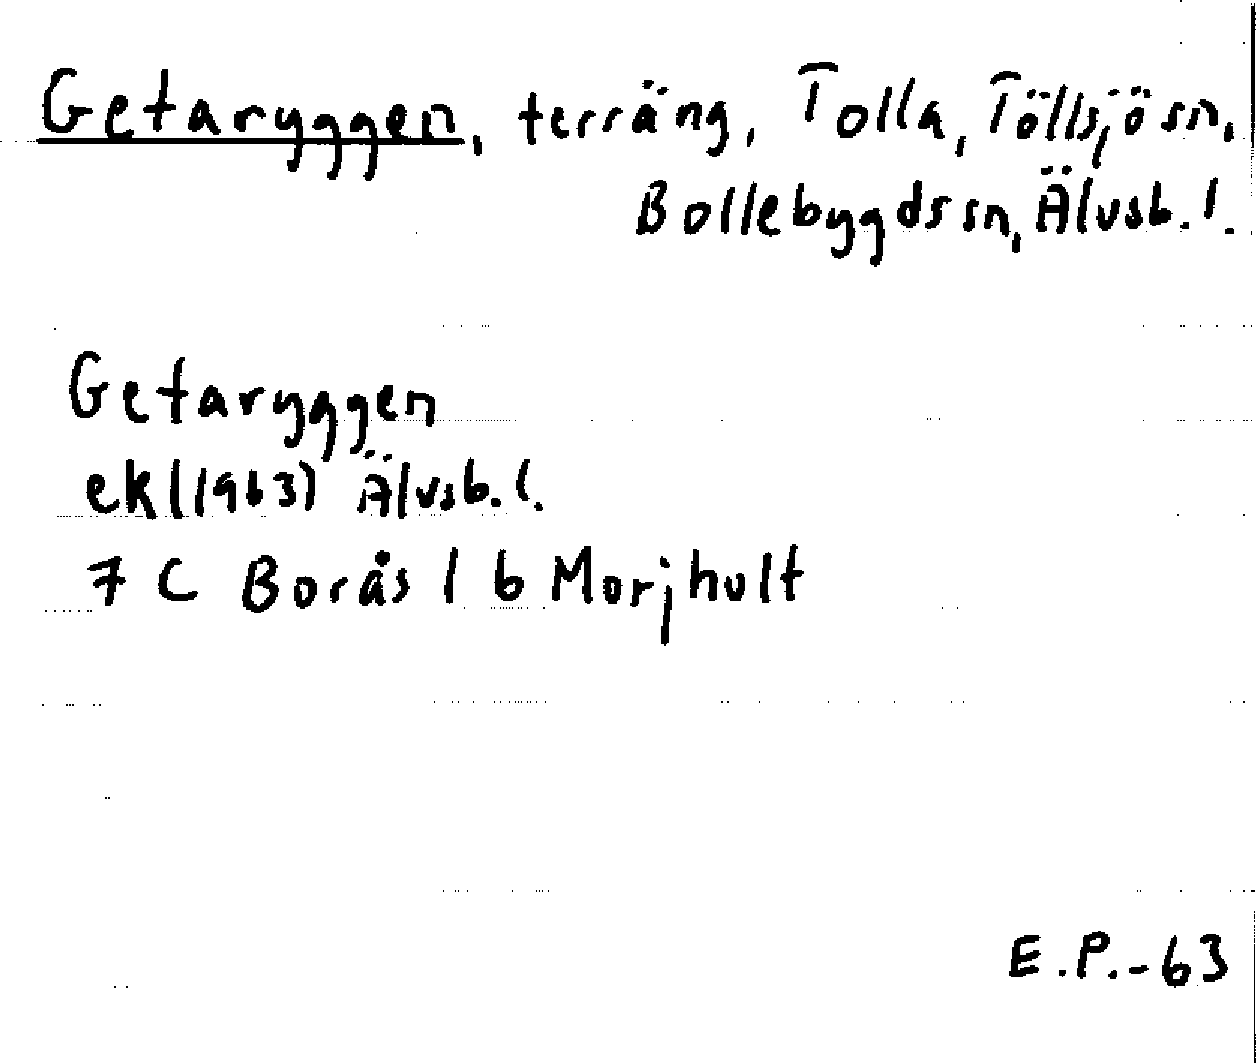 Getaryggen, terräng, Tolla, Töllsjö sn,
Bollebygds sn, Älvsb. l.
Getaryggen
ek (1963) Älvsb. l.
7 C Borås 1 b Morjhult
E.P.-63